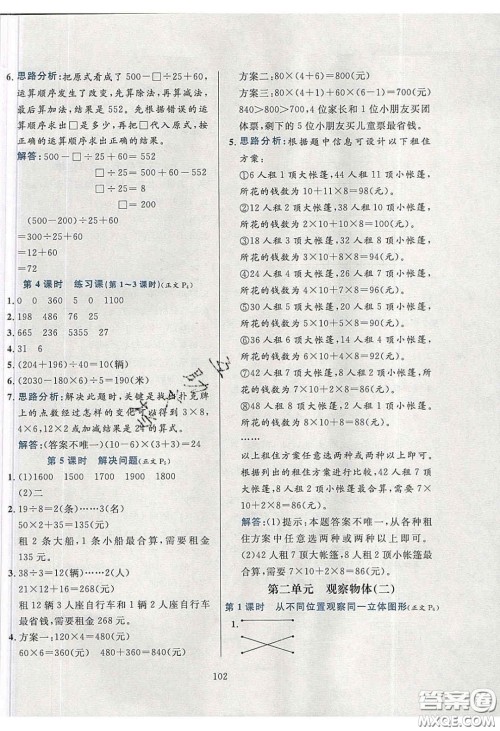 6. 思路分析:把原式看成了 500-□÷25+60,
运算顺序出现错误,先算除法,再算减法,
最后算加法,结果是 552。先根据错误的运
算顺序求出□是多少,再把□代入原式,按
正确的运算顺序求出正确的结果。
解答:500-□÷25+60=552
□÷25+60=
□=
(500-200)÷25+60
=300÷25+60
=12+60
=72
第 4 课时 练习课(第 1~3 课时)(正文 P₄)
1. 0 0 360 5 1100
2. 198 486 76 26
3. 665 235 1155 1327
4. 31 6
5. (204+196)÷40=10(辆)
6. (2030-180×6)÷5=190(米)
7. 思路分析:解决此题时,关键是找出扑克牌
上的点数经过怎样的变化可以得到 3×8,
4×6,12×2 或加减法结果是 24 的算式。
解答:(答案不唯一)(10-6)×(3+3)=24
第 5 课时 解决问题(正文 P₅)
1. (1)1600 1500 1700 1800
(2)二
2. 19÷8=2(条)……3(人)
50×2+35=135(元)
租 2 条大船,1 条小船最合算,需要租金
135 元。
3. 38÷3=12(辆)……2(人)
21×12+16=268(元)
租 12 辆 3 人座自行车和 1 辆 2 人座自行车
最合算,需要租金 268 元。
4. 方案一:120×4+60×6=840(元)
60×6=360(元) 840-360=480(元)
方案二:80×(4+6)=800(元)
方案三:80×(4+1)+80×(6-1)=700(元)
840>800>700,4 位家长和 1 位小朋友买团
体票,剩下的 5 位小朋友买儿童票最省钱。
5. 思路分析:根据题中信息可设计以下租住
方案:
①6 人租 1 顶大帐篷,44 人租 11 顶小帐篷,
所花的钱数为 10+11×8=98(元)。
②12 人租 2 顶大帐篷,38 人租 10 顶小帐篷,
所花的钱数为 2×10+10×8=100(元)。
③18 人租 3 顶大帐篷,32 人租 8 顶小帐篷,
所花的钱数为 3×10+8×8=94(元)。
④24 人租 4 顶大帐篷,26 人租 7 顶小帐篷,
所花的钱数为 4×10+7×8=96(元)。
⑤30 人租 5 顶大帐篷,20 人租 5 顶小帐篷,
所花的钱数为 5×10+5×8=90(元)。
⑥36 人租 6 顶大帐篷,14 人租 4 顶小帐篷,
所花的钱数为 6×10+4×8=92(元)。
⑦42 人租 7 顶大帐篷,8 人租 2 顶小帐篷,
所花的钱数为 7×10+2×8=86(元)。
⑧48 人租 8 顶大帐篷,2 人租 1 顶小帐篷,
所花的钱数为 8×10+1×8=88(元)。
……
以上租住方案任意选两种或两种以上都可以。
根据列出的租住方案可知,42 人租 7 顶大
帐篷,8 人租 2 顶小帐篷最省钱,需要租金
86 元。
解答:(1)提示:本题答案不唯一,从各种租
住方案中任意选两种或两种以上都可以。
(2)42 人租 7 顶大帐篷,8 人租 2 顶小帐篷
最省钱,需要租金 86 元。
第二单元 观察物体(二)
第 1 课时 从不同位置观察同一立体图形(正文 P₆)
1.
102
答案圈
MXQE.COM